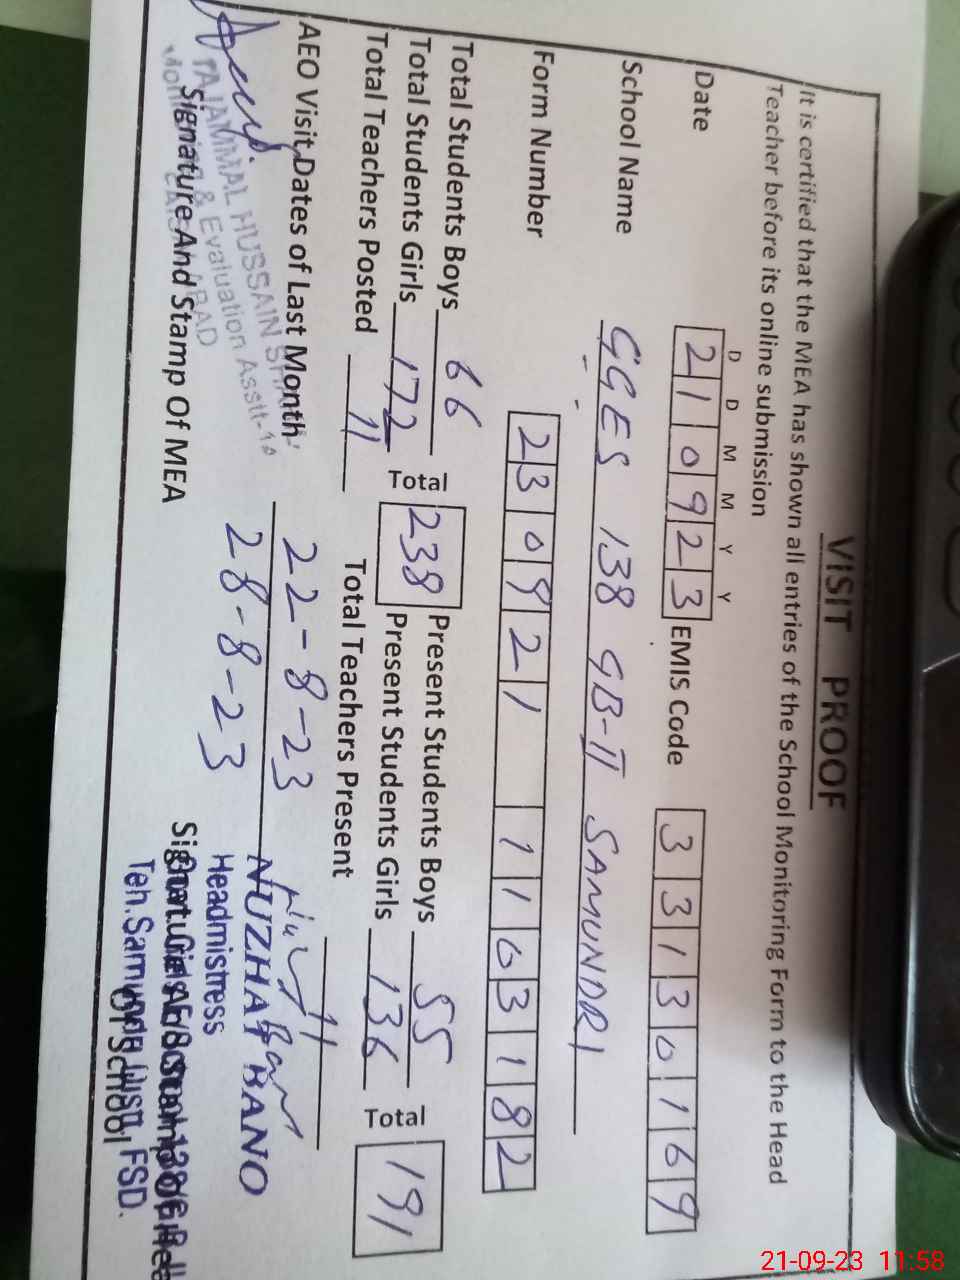 VISIT PROOF
It is certified that the MEA has shown all entries of the School Monitoring Form to the Head
Teacher before its online submission
D D M M Y Y
Date 2 1 0 9 2 3 EMIS Code 3 3 1 3 0 1 6 9
School Name GGES 138 GB-II SAMUNDRI
Form Number 2 3 0 9 2 1 1 1 0 3 1 8 2
Total Students Boys 66 Total 238 Present Students Boys 55 Total 191
Total Students Girls 172 Present Students Girls 136
Total Teachers Posted 11 Total Teachers Present 11
AEO Visit Dates of Last Month 22-8-23
28-8-23
TAJAMMAL HUSSAIN
& Evaluation Asstt-10
Signature And Stamp Of MEA
NUZHAT BANO
Headmistress
Teh. Samundri Distt. FSD.
Of School
21-09-23 11:58